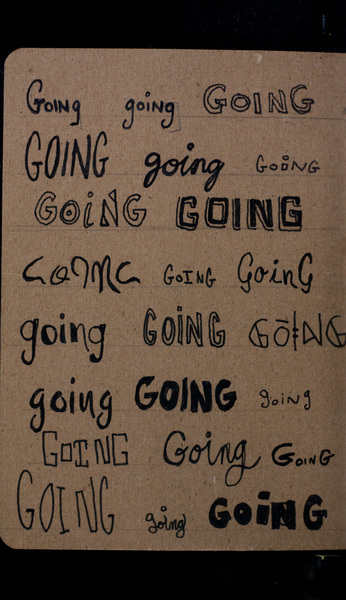 GOING going GOING
GOING going GOiNG
GOiNG GOING
GOING GoinG
going GOiNG GOING
going GOING goiNg
GOING Going GOING
GOING going GOiNG